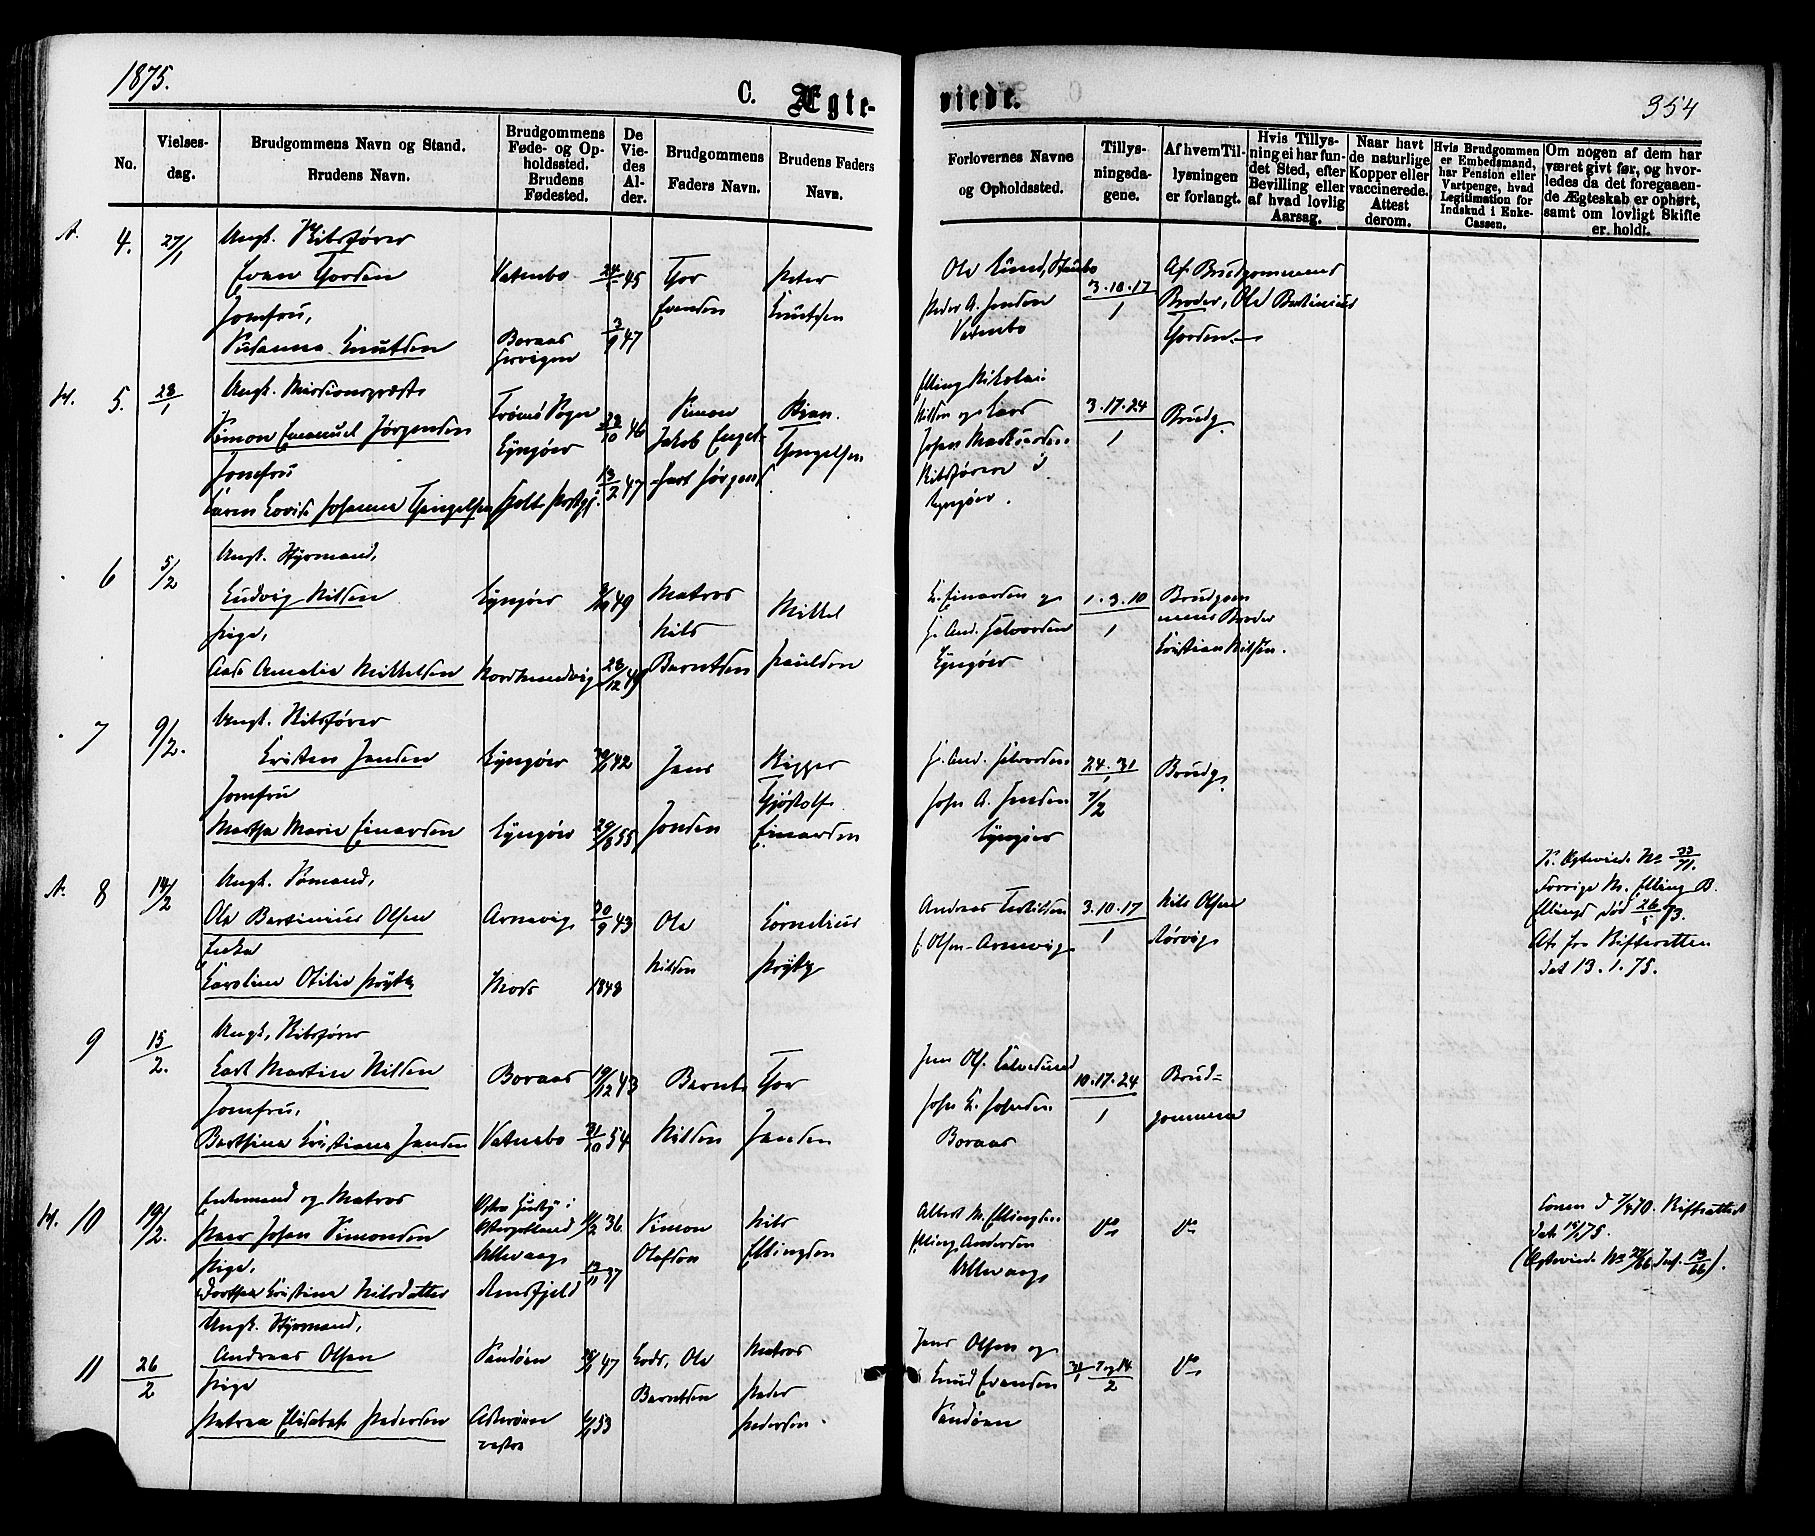 1875.
C. Ægte-
viede.
354
No.
Vielses-
dag.
Brudgommens Navn og Stand.
Brudens Navn.
Brudgommens
Føde- og Op-
holdssted.
Brudens
Fødested.
De
Vie-
des
Al-
der.
Brudgommens
Faders Navn.
Brudens Faders
Navn.
Forlovernes Navne
og Opholdssted.
Tillys-
ningsda-
gene.
Af hvem Til-
lysningen
er forlangt.
Hvis Tillys-
ning ei har fun-
det Sted, efter
Bevilling eller
af hvad lovlig
Aarsag.
Naar havt
de naturlige
Kopper eller
vaccinerede.
Attest
derom.
Hvis Brudgommen
er Embedsmand,
har Pension eller
Vartpenge, hvad
Legitimation for
Indskud i Enke-
Cassen.
Om nogen af dem har
været givt før, og hvor-
ledes da det foregaaen-
de Ægteskab er ophørt,
samt om lovligt Skifte
er holdt.
4. 27/1
Ungk. Skibsfører
Evan Thorsen
Jomfru,
Susanna Knutsen
Vatnebo
Boraas
45
3/9 47
Thor
Evensen
Peter
Knutsen
Ole Lund, Staubo
Peder A. Jensen
Vatnebo
3.10.17
1
Af Brudgommens
Broder, Ole Bertinius
Thorsen
5. 28/1
Ungk. Missionspræst
Simon Emanuel Jørgensen
Jomfru
Karen Lovise Johanne Thengelsen
Tromø Sogn
Lyngøer
Holt Præstgj.
46
13/2 47
Simon
Jakob Engel-
hart Jørgens
Thengelsen
Elling Nikolai
Nilsen og Lars
Johan Markussen
Skibsførere i
Lyngøer.
3.17.24
1
Brudg.
6 5/2
Ungk. Styrmand,
Ludvig Nilsen
Pige,
Aase Amalie Mikkelsen
Lyngøer
49
23/12 49
Matros
Nils
Berntsen
Mikkel
Paulsen
E. Einarsen og
H. And. Halvorsen
Lyngøer
1.3.10
1
Brudgom
mens Broder
Kristian Nilsen.
7 9/2.
Ungk. Skibsfører
Kristen Jensen
Jomfru
Marthe Marie Einarsen
Lyngøer
42
Lyngøer
29/8 55
Jens
Jensen
Skipper
Gjøstolf
Einarsen
H. And. Halvorsen
John A. Jensen
Lyngøer
24.31
1
7/2
Brudg.
8 14/2
Ungk. Sømand,
Ole Bertinius Olsen
Enke
Karoline Otilie Prytz
Arnevig
20/9 43
Mors
1848
Ole
Nilsen
Kornelius
Prytz
Andreas Terkilsen
Olsen - Arnevig
3.10.17
1
Nils Olsen
Rørvig
S. Ægteviede No 33/71.
Forrige M. Elling B.
Ellings død 26/5 73.
Att. fra Skifteretten
dat 13.1.75.
9 15/2.
Ungk. Skibsfører
Karl Martin Nilsen
Jomfru,
Berthine Kristiane Jensen
Boraas
19/12 43
Vatnebo
31/10 54
Bernt
Nilsen
Thor
Jensen
Jens Ol.
John K. Johnsen
Boraas
10.17.24
1
Brud-
gommen
10 19/2.
Enkemand og Matros
Johan Simonsen
Pige,
Dorthea Kristine Nilsdatter
Østra Husby i
Østergotland
Ullevaag
36.
13/11 37
Simon
Olofson
Nils
Ellingsen
Albert M. Ellingsen
Elling Andersen
Ullevaag
Do
Do
Konen d 7/9 70. Skifteattest
dat. 15/1 75.
(Ægteviede No 22/66 Jnf. 13/66).
11 26/2
Ungk. Styrmand,
Andreas Olsen
Pige
Petrea Elisabet Pedersen
Sandøen
47
Askerøen
vestre
53
Lods, Ole
Berntsen
Matros
Peder
Pedersen.
Jens Olsen og
Knud Evensen
Sandøen
31/1 7 og 14
2
Do